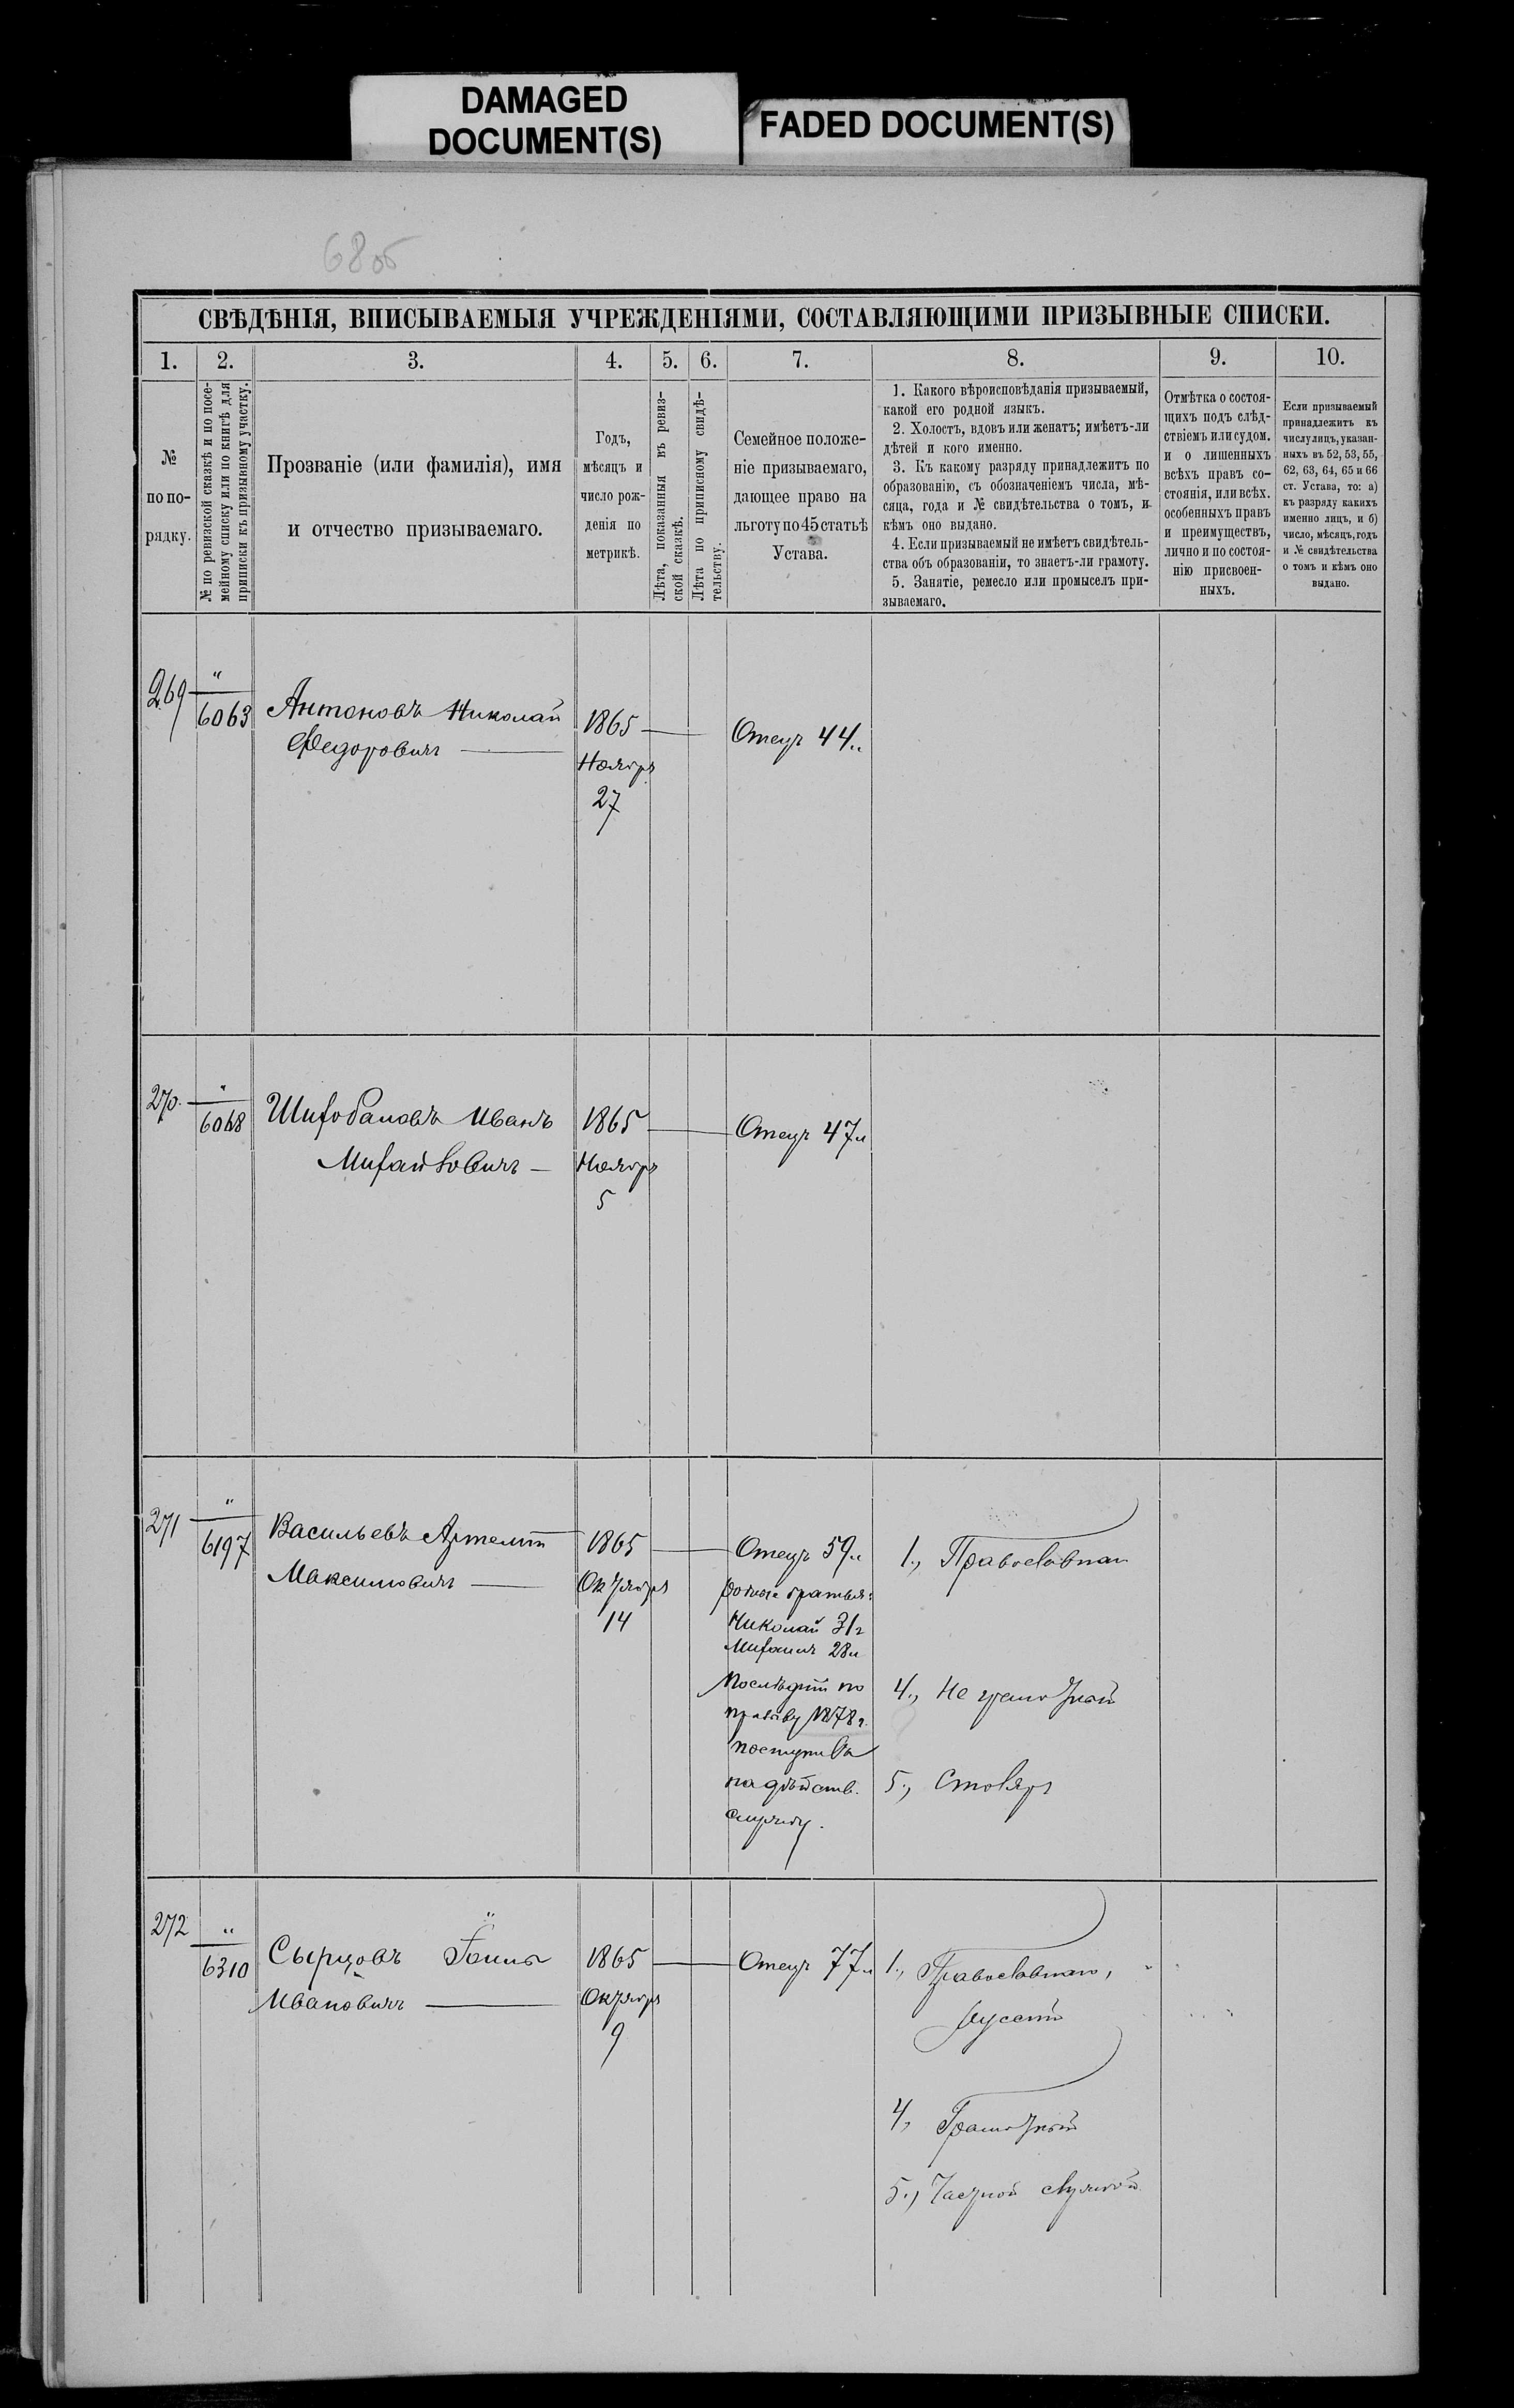 DAMAGED
DOCUMENT(S)
FADED DOCUMENT(S)
68об
СВѢДѢНІЯ, ВПИСЫВАЕМЫЯ УЧРЕЖДЕНІЯМИ, СОСТАВЛЯЮЩИМИ ПРИЗЫВНЫЕ СПИСКИ.
1. 2. 3. 4. 5. 6. 7. 8. 9. 10.
№
по по-
рядку.
№ по ревизской сказкѣ и по посе-
мейному списку или по книгѣ для
приписки къ призывному участку.
Прозваніе (или фамилія), имя
и отчество призываемаго.
Годъ,
мѣсяцъ и
число рож-
денія по
метрикѣ.
Лѣта, показанныя въ ревиз-
ской сказкѣ.
Лѣта по приписному свидѣ-
тельству.
Семейное положе-
ніе призываемаго,
дающее право на
льготу по 45 статьѣ
Устава.
1. Какого вѣроисповѣданія призываемый,
какой его родной языкъ.
2. Холостъ, вдовъ или женатъ; имѣетъ-ли
дѣтей и кого именно.
3. Къ какому разряду принадлежитъ по
образованію, съ обозначеніемъ числа, мѣ-
сяца, года и № свидѣтельства о томъ, и
кѣмъ оно выдано.
4. Если призываемый не имѣетъ свидѣтель-
ства объ образованіи, то знаетъ-ли грамоту.
5. Занятіе, ремесло или промыселъ при-
зываемаго.
Отмѣтка о состоя-
щихъ подъ слѣд-
ствіемъ или судом.
и о лишенныхъ
всѣхъ правъ со-
стоянія, или всѣх.
особенныхъ правъ
и преимуществъ,
лично и по состоя-
нію присвоен-
ныхъ.
Если призываемый
принадлежитъ къ
числу лицъ, указан-
ныхъ въ 52, 53, 55,
62, 63, 64, 65 и 66
ст. Устава, то: а)
къ разряду какихъ
именно лицъ, и б)
число, мѣсяцъ, годъ
и № свидѣтельства
о томъ и кѣмъ оно
выдано.
269 " 6063 Антоновъ Николай 1865 Отецъ 44л.
Федоровичъ
Ноября
27
270. " 6068 Шихобаловъ Иванъ 1865 Отецъ 47л
Михайловичъ Ноября
5
271 " 6197 Васильевъ Артемій 1865 Отецъ 59л 1., Православнаго
Максимовичъ Октября родные братья:
14 Николай 31г
Михаилъ 28л
Послѣдній по 4., Не грамотный
призыву 1878г.
поступилъ
на дѣйств. 5., Столяръ
службу.
272 " 6310 Сырцовъ 1865 Отецъ 77л 1., Православнаго,
Ивановичъ Октября
9 русскій
4, Грамотный
5., Частной службой